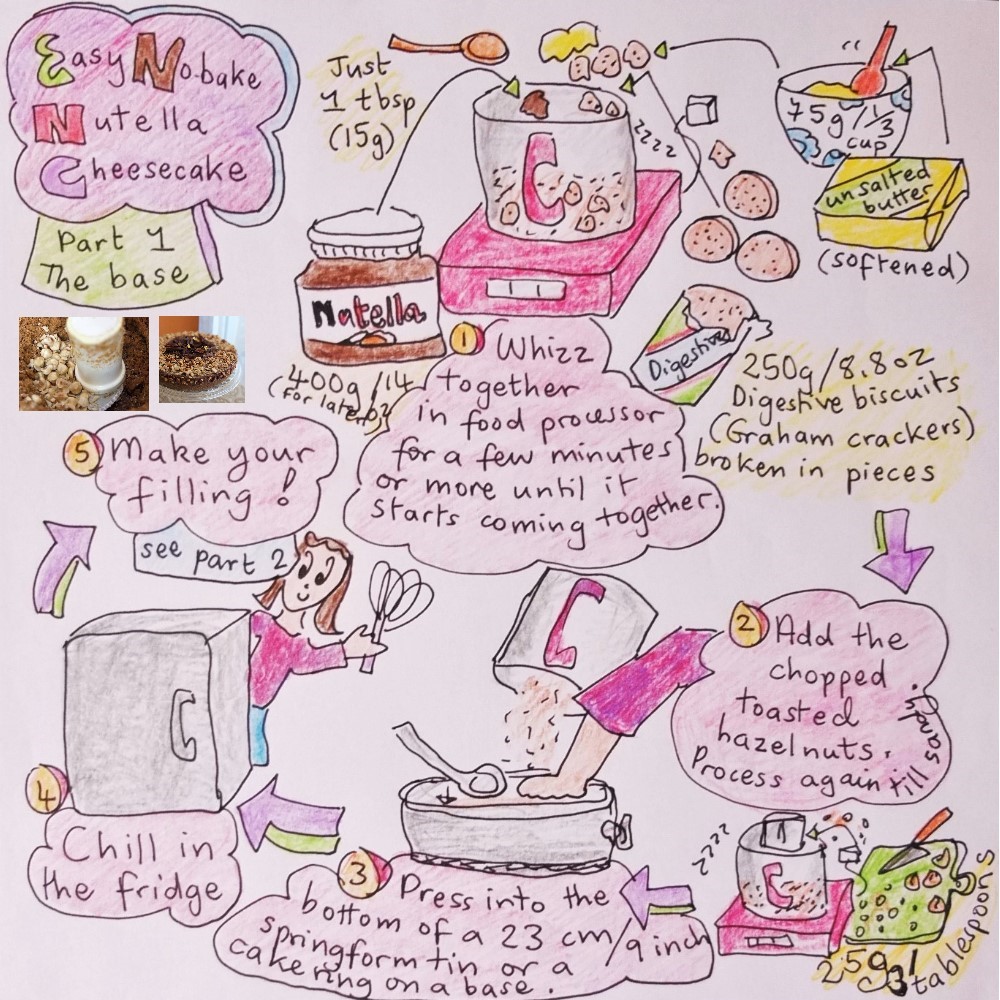 Easy No bake
Nutella
Cheesecake
Part 1
The base
Just
1 tbsp
(15g)
C
75g/1/3
cup
unsalted
butter
(softened)
Nutella
400g/14
(for later)
oz
Digestives
250g/8.8oz
Digestive biscuits
(Graham crackers)
broken in pieces
1 Whizz
together
in food processor
for a few minutes
or more until it
starts coming together.
zzzz
2 Add the
chopped
toasted
hazelnuts.
Process again till
sandy.
zzzz
C
25g/
3 tablespoons
C
3 Press into the
bottom of a 23 cm/9 inch
springform tin or a
cake ring on a base.
4
Chill in
the fridge
5 Make your
filling!
see part 2